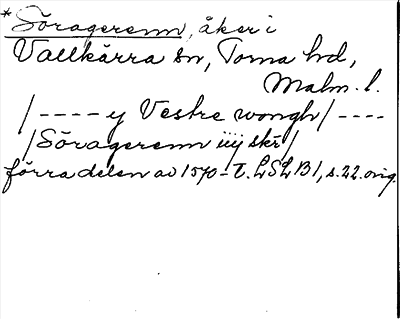 *Söragerenn, åker i
Vallkärra sn, Torna hd,
Malm. l.
/---- y Vestre wongh/----
/Söragerenn iiij skr/
förra delen av 1570-t. LSLB1, s.22.orig.